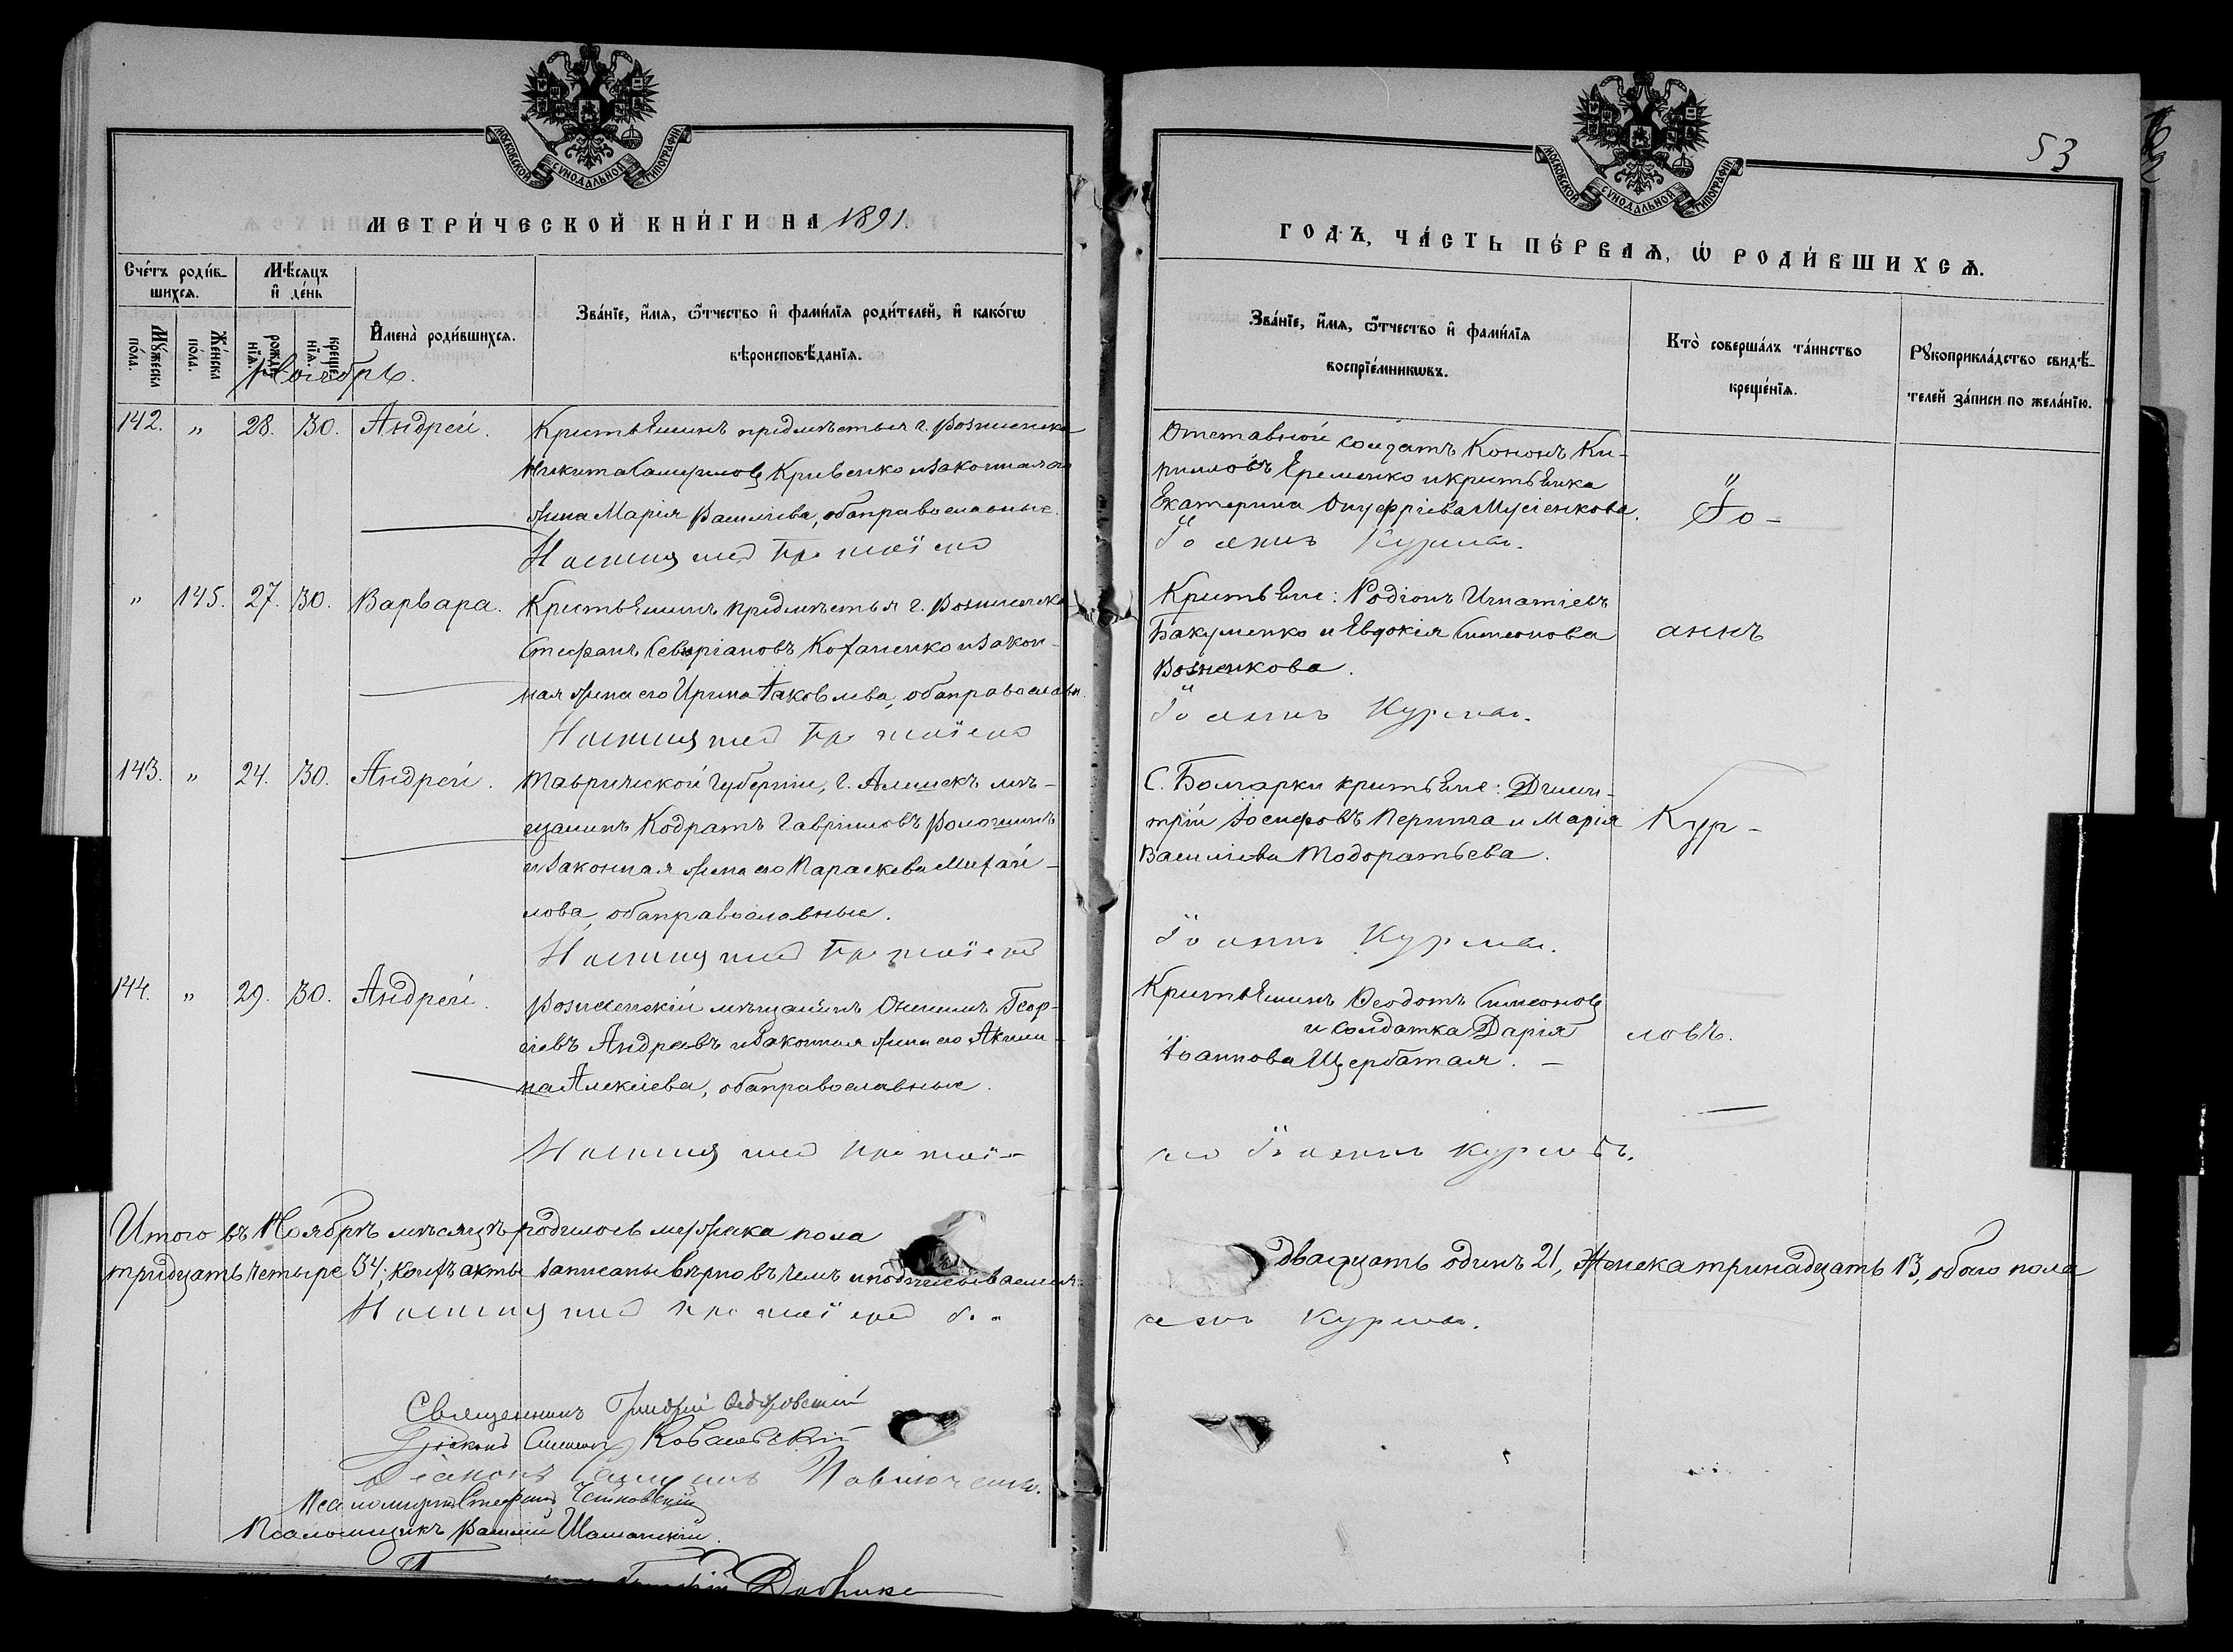 МОСКОВСКОЙ СѴНОДАЛЬНОЙ ТИПОГРАФІИ
МЕТРИ́ЧЕСКОЙ КНИ́ГИ НА 1891.
Сче́тъ роди́в-
шихсѧ.
Мѣ́сѧцъ
и҆ де́нь
Мꙋ́жеска
по́ла.
Же́нска
по́ла.
рожде́-
нїѧ.
креще́-
нїѧ.
И҆мена̀ роди́вшихсѧ.
Зва́нїе, и҆́мѧ, ѿтчество и҆ фами́лїѧ роди́телей, и҆ како́гѡ
вѣроисповѣ́данїѧ.
Ноябрь.
142. " 28. 30. Андрей. Крестьянинъ предмѣстья г. Вознесенска
Никита Кривенко и законная его
жена Марія Василіева, оба православные.
Настоятель Протоіерей
" 145. 27. 30. Варвара. Крестьянинъ предмѣстья г. Вознесенска
Стефанъ Севиріановъ Коханенко и закон-
ная жена его Ирина Іаковлева, оба православн.
Настоятель Протоіерей
143. " 24. 30. Андрей. Таврической губерніи, г. Алешекъ мѣ-
щанинъ Кодратъ Гавріиловъ Волошинъ
и законная жена его Параскева Михаи-
лова, оба православные.
Настоятель Протоіерей
144. " 29. 30. Андрей. Вознесенскій мѣщанинъ Онисимъ Геор-
гіевъ Андреевъ и законная жена его Акили-
на Алексіева, оба православные.
Настоятель Протоіе-
Итого въ Ноябрѣ мѣсяцѣ родилось мужеска пола
тридцать четыре 34; коихъ акты записаны вѣрно въ чемъ и подписываемся:
Настоятель Протоіерей Іо-
Священникъ Григорій Ѳедоровскій
Діаконъ Симеонъ Ковалевскій
Діаконъ Павлюченко.
Псаломщикъ Стефанъ
Псаломщикъ Василій Шаманскій.
53
МОСКОВСКОЙ СѴНОДАЛЬНОЙ ТИПОГРАФІИ
ГОДЪ, ЧА́СТЬ ПЕ́РВАѦ, Ѡ҆ РОДИ́ВШИХСѦ.
Зва́нїе, и҆́мѧ, ѿтчество и҆ фами́лїѧ
воспрїе́мникѡвъ.
Кто̀ соверша́лъ та́инство
креще́нїѧ.
Рꙋкоприкла́дство свидѣ́-
телей за́писи по жела́нїю.
Отставной солдатъ Кононъ Ки-
рилловъ Еременко и крестьянка
Екатерина Онуфріева Мусіенкова.
Іо-
Іоаннъ Курловъ.
Крестьяне: Родіонъ Игнатіевъ
Бакуменко и Евдокія Симеонова
Возненкова.
аннъ
Іоаннъ Курловъ.
С. Болгарки крестьяне: Дими-
трій Іосифовъ Перипча и Марія
Василіева Тодоратьева.
Кур-
Іоаннъ Курловъ.
Крестьянинъ Ѳеодотъ Симеоновъ
и солдатка Дарія
Іоаннова Щербатая. —
ловъ.
рей Іоаннъ Курловъ.
двадцать одинъ 21, женска тринадцать 13, обоего пола
аннъ Курловъ.